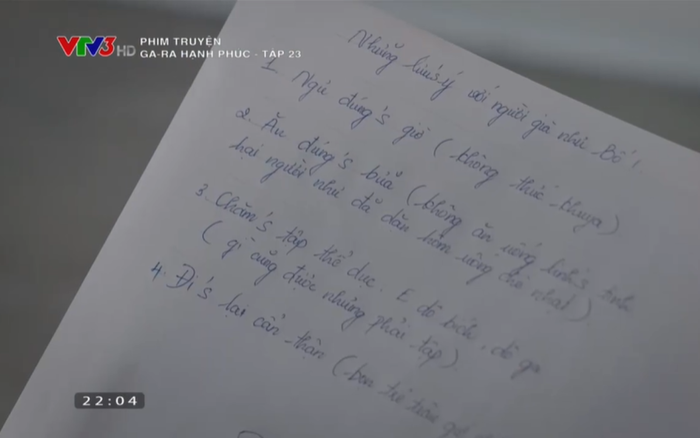 VTV3 HD
PHIM TRUYỆN
GA-RA HẠNH PHÚC - TẬP 23
Những lưu ý với người già như Bố!
1. Ngủ đúng giờ (không thức khuya)
2. Ăn đúng bữa (không ăn uống linh tinh
hại người như đã dặn hôm uống chè nhạt).
3. Chăm tập thể dục.
(gì cũng được nhưng phải tập).
4. Đi lại cẩn thận
22:04